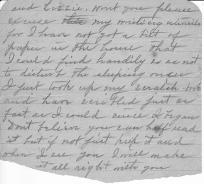 and Lizzie. Wont you please
excuse my writing
for I have not got a bit of
paper in the house that
I could find handily so as not
to disturb the sleeping ones
I just took up my scratch book
and have scribbled just as
fast as I could since I began
Dont believe you can read
it but if not just keep it and
when I see you I will make
it all right with you